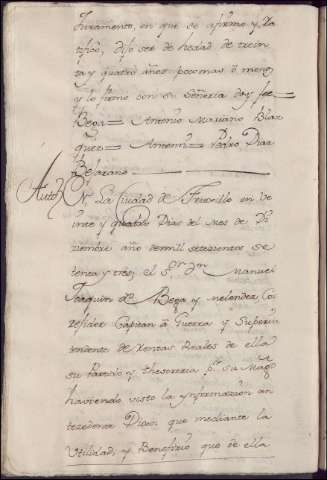 Juramento, en que se afirmo y Ra
tifico, dijo ser de hedad de trein
ta y quatro años poco mas ó menos
y lo firmo con su Señoria doy fee =
Bega = Antonio Mariano Blaz
quez = Antemi = Pedro Diaz
Bejarano
Auto / En La Ciudad de Truxillo en ve
inte y quatro Dias del Mes de Di
ziembre año demill setezientos se
tenta y tres; el Sor Dn Manuel
Joaquin de Bega y Melendez Co
rrejidor Capitan á Guerra y Superin
tendente de Rentas Reales de ella
su Partido y thesoreria pr. Su Magd
haviendo visto la ynformazion an
tezedente Dixo que mediante la
Utilidad, y Beneficio que de ella